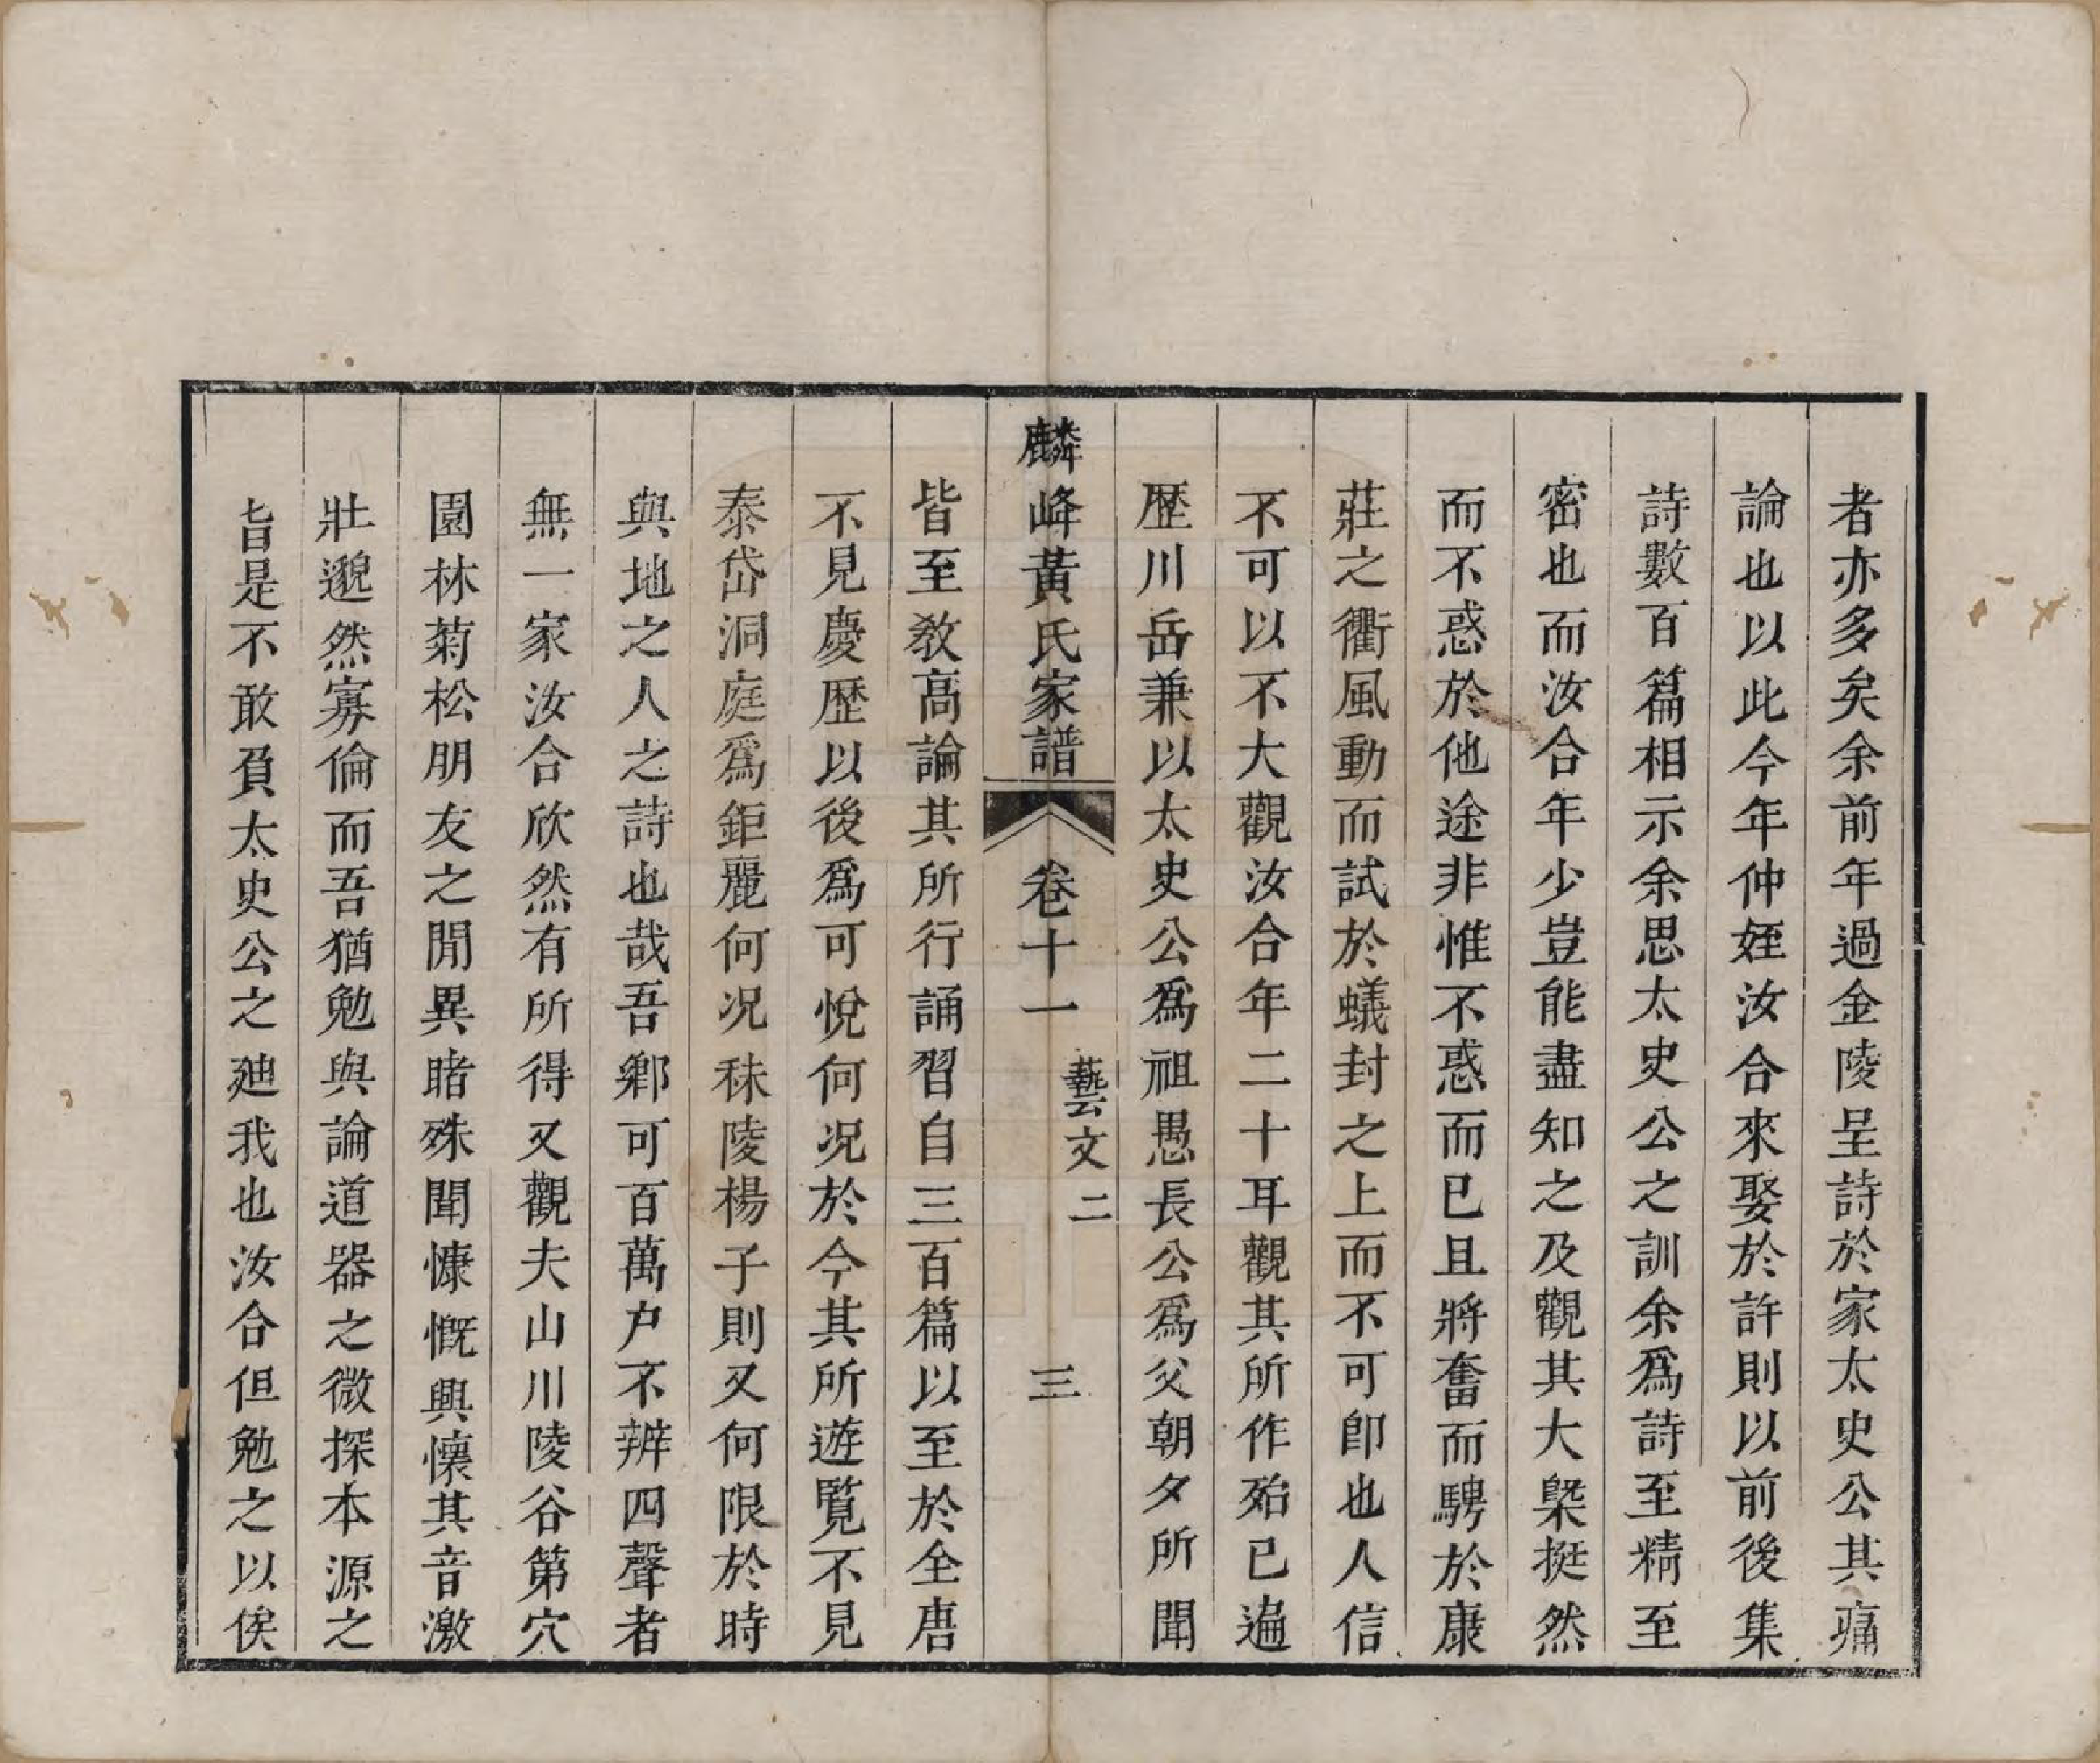 者亦多矣余前年過金陵呈詩於家太史公其痛
論也以此今年仲姪汝合來娶於許則以前後集
詩數百篇相示余思太史公之訓余爲詩至精至
密也而汝合年少豈能盡知之及觀其大槩挺然
而不惑於他途非惟不惑而已且將奮而騁於康
莊之衢風動而試於蟻封之上而不可卽也人信
不可以不大觀汝合年二十耳觀其所作殆已遍
歷川岳兼以太史公爲祖愚長公爲父朝夕所聞
麟峰黃氏家譜 卷十一 藝文二 三
皆至敎高論其所行誦習自三百篇以至於全唐
不見慶歷以後爲可悅何况於今其所遊覧不見
泰岱洞庭爲鉅麗何况秣陵楊子則又何限於時
與地之人之詩也哉吾鄉可百萬户不辨四聲者
無一家汝合欣然有所得又觀夫山川陵谷第穴
園林菊松朋友之閒異睹殊聞慷慨興懷其音激
壯邈然寡倫而吾猶勉與論道器之微探本源之
旨是不敢負太史公之廸我也汝合但勉之以俟